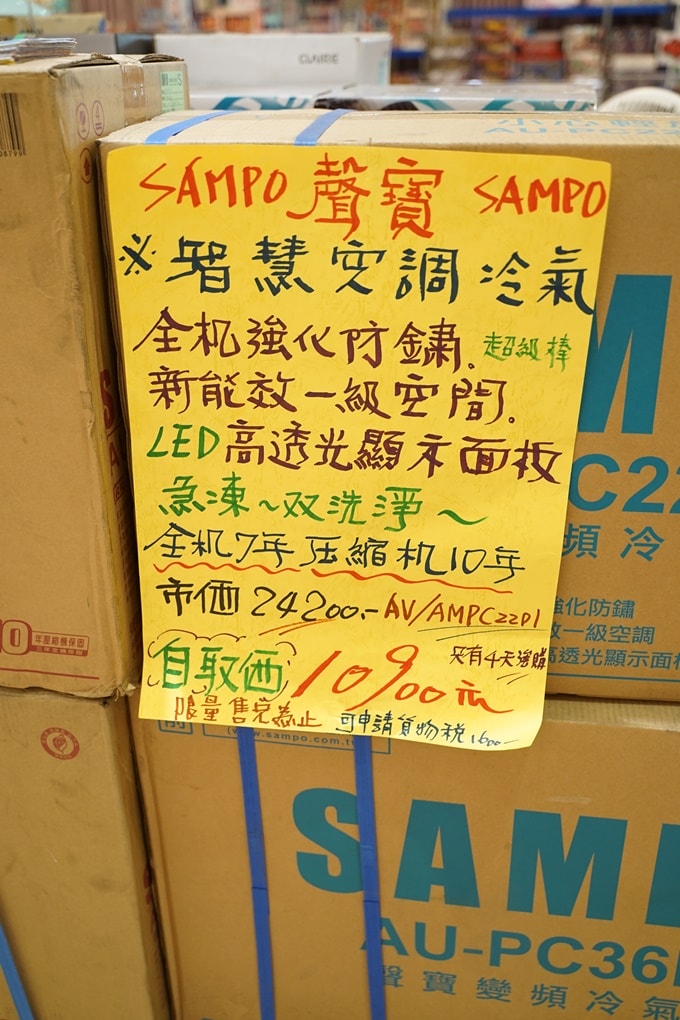 CLAIRE
小心輕放
SAMPO 聲寶 SAMPO
※智慧空調冷氣
全机強化防鏽。超級棒
新能效一級空間。
LED高透光顯示面板
急凍~双洗淨~
全机7年压縮机10年
市価24200.-AV/AMPC22D1
只有4天強購
自取価10900元
限量售完為止 可申請貨物稅1600-
M
C22
頻冷
強化防鏽
效一級空調
高透光顯示面板
10年壓縮機保固
www.sampo.com.t
SAM
AU-PC36
聲寶變頻冷氣